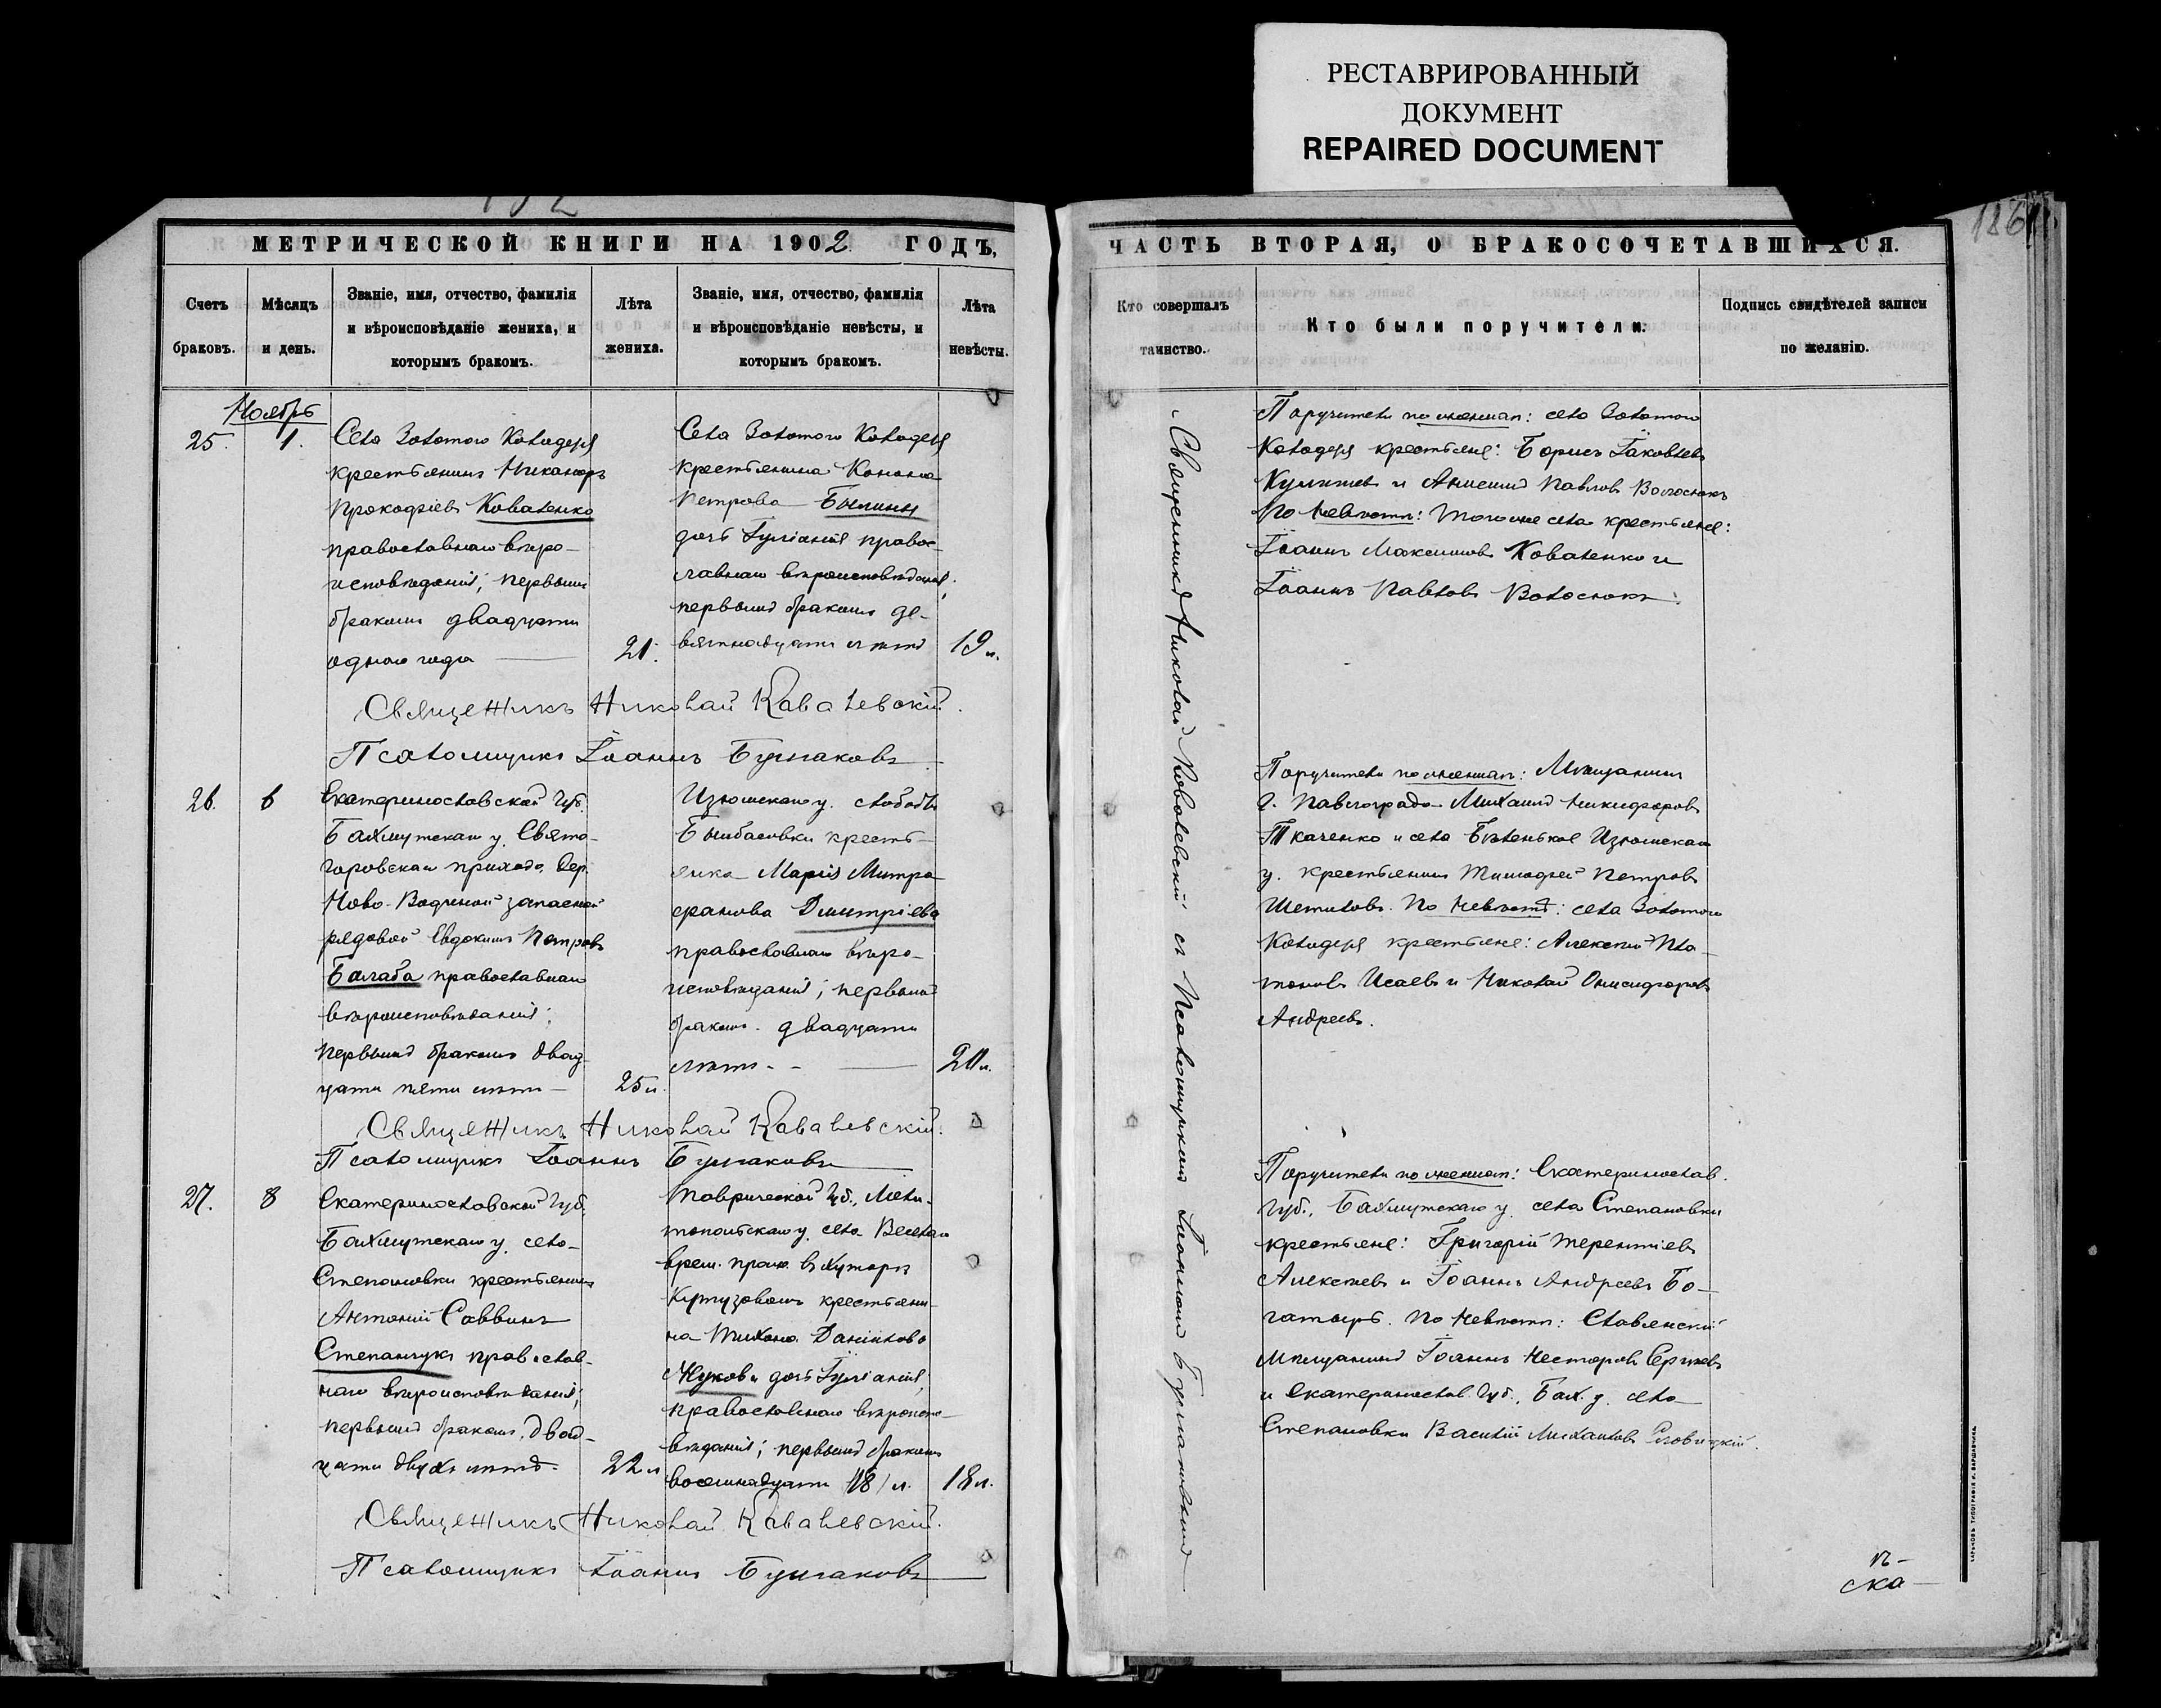 РЕСТАВРИРОВАННЫЙ
ДОКУМЕНТ
REPAIRED DOCUMENT
МЕТРИЧЕСКОЙ КНИГИ НА 1902 ГОДЪ,
Счетъ
браковъ.
Мѣсяцъ
и день.
Званіе, имя, отчество, фамилія
и вѣроисповѣданіе жениха, и
которымъ бракомъ.
Лѣта
жениха.
Званіе, имя, отчество, фамилія
и вѣроисповѣданіе невѣсты, и
которымъ бракомъ.
Лѣта
невѣсты.
Ноябрь
25.
1.
Села Золотого Колодезя
крестьянинъ Никаноръ
Прокофіевъ Коваленко
православнаго вѣро-
исповѣданія; первымъ
бракомъ двадцати
одного года
21.
Села Золотого Колодезя
крестьянина Конона
Петрова
дочь Іуліанія правос-
лавнаго вѣроисповѣданія;
первымъ бракомъ де-
вятнадцати лѣтъ
19 л.
Священникъ Николай Кавалевскій.
Псаломщикъ Іоаннъ Булгаковъ
26.
6
Екатеринославской губ.
Бахмутскаго у. Свято-
горовскаго прихода, дер.
Ново- запасной
рядовой Евдокимъ Петровъ
Балаба православнаго
вѣроисповѣданія;
первымъ бракомъ двад-
цати пяти лѣтъ
25 л.
Изюмскаго у. слободы
Бымбасовки кресть-
янка Марія Митро
фанова Дмитріева
православнаго вѣро-
исповѣданія; первымъ
бракомъ двадцати
лѣтъ
20 л.
Священникъ Николай Кавалевскій.
Псаломщикъ Іоаннъ Булгаковъ
27.
8
Екатеринославской губ.
Бахмутскаго у. села
Степановки крестьянинъ
Антоній Саввинъ
Степанчукъ православ-
наго вѣроисповѣданія;
первымъ бракомъ, двад-
цати двухъ лѣтъ
22 л
Таврической губ., Мели-
топольскаго у. села Веселаго
врем. прож. въ хуторѣ
Кутузовомъ крестьяни-
на Тихона Даніилова
Жукова дочь Іуліанія,
православнаго вѣроиспо-
вѣданія; первымъ бракомъ
восемнадцати /18/ л.
18 л.
Священникъ Николай Кавалевскій.
Псаломщикъ Іоаннъ Булгаковъ
ЧАСТЬ ВТОРАЯ, О БРАКОСОЧЕТАВШИХСЯ.
186
Кто совершалъ
таинство.
Кто были поручители.
Подпись свидѣтелей записи
по желанію.
Священникъ Николай Ковалевскій съ Псаломщикомъ Іоанномъ Булгаковымъ
Поручители по женихѣ: села Золотого
Колодезя крестьяне: Борисъ Іаковлевъ
и Павловъ Волоснокъ
По невѣстѣ: того же села крестьяне:
Іоаннъ Максимовъ Коваленко и
Іоаннъ Павловъ Волоснокъ.
Поручители по женихѣ: Мѣщанинъ
г. Павлограда Михаилъ Никифоровъ
Ткаченко и села Бѣленькое Изюмскаго
у. крестьянинъ Тимофей Петровъ
Шетиловъ. По невѣстѣ: села Золотого
Колодезя крестьяне: Алексій Пла-
тоновъ Исаевъ и Николай Онисифоровъ
Андреевъ.
Поручители по женихѣ: Екатеринослав.
губ., Бахмутскаго у. села Степановки
крестьяне: Григорій Терентіевъ
Алексѣевъ и Іоаннъ Андреевъ Бо-
гатырь. По невѣстѣ: Славянскій
мѣщанинъ Іоаннъ Несторовъ Сергѣевъ
и Екатеринослав. губ., Бах. у. села
Степановки Василій Михаиловъ
ска